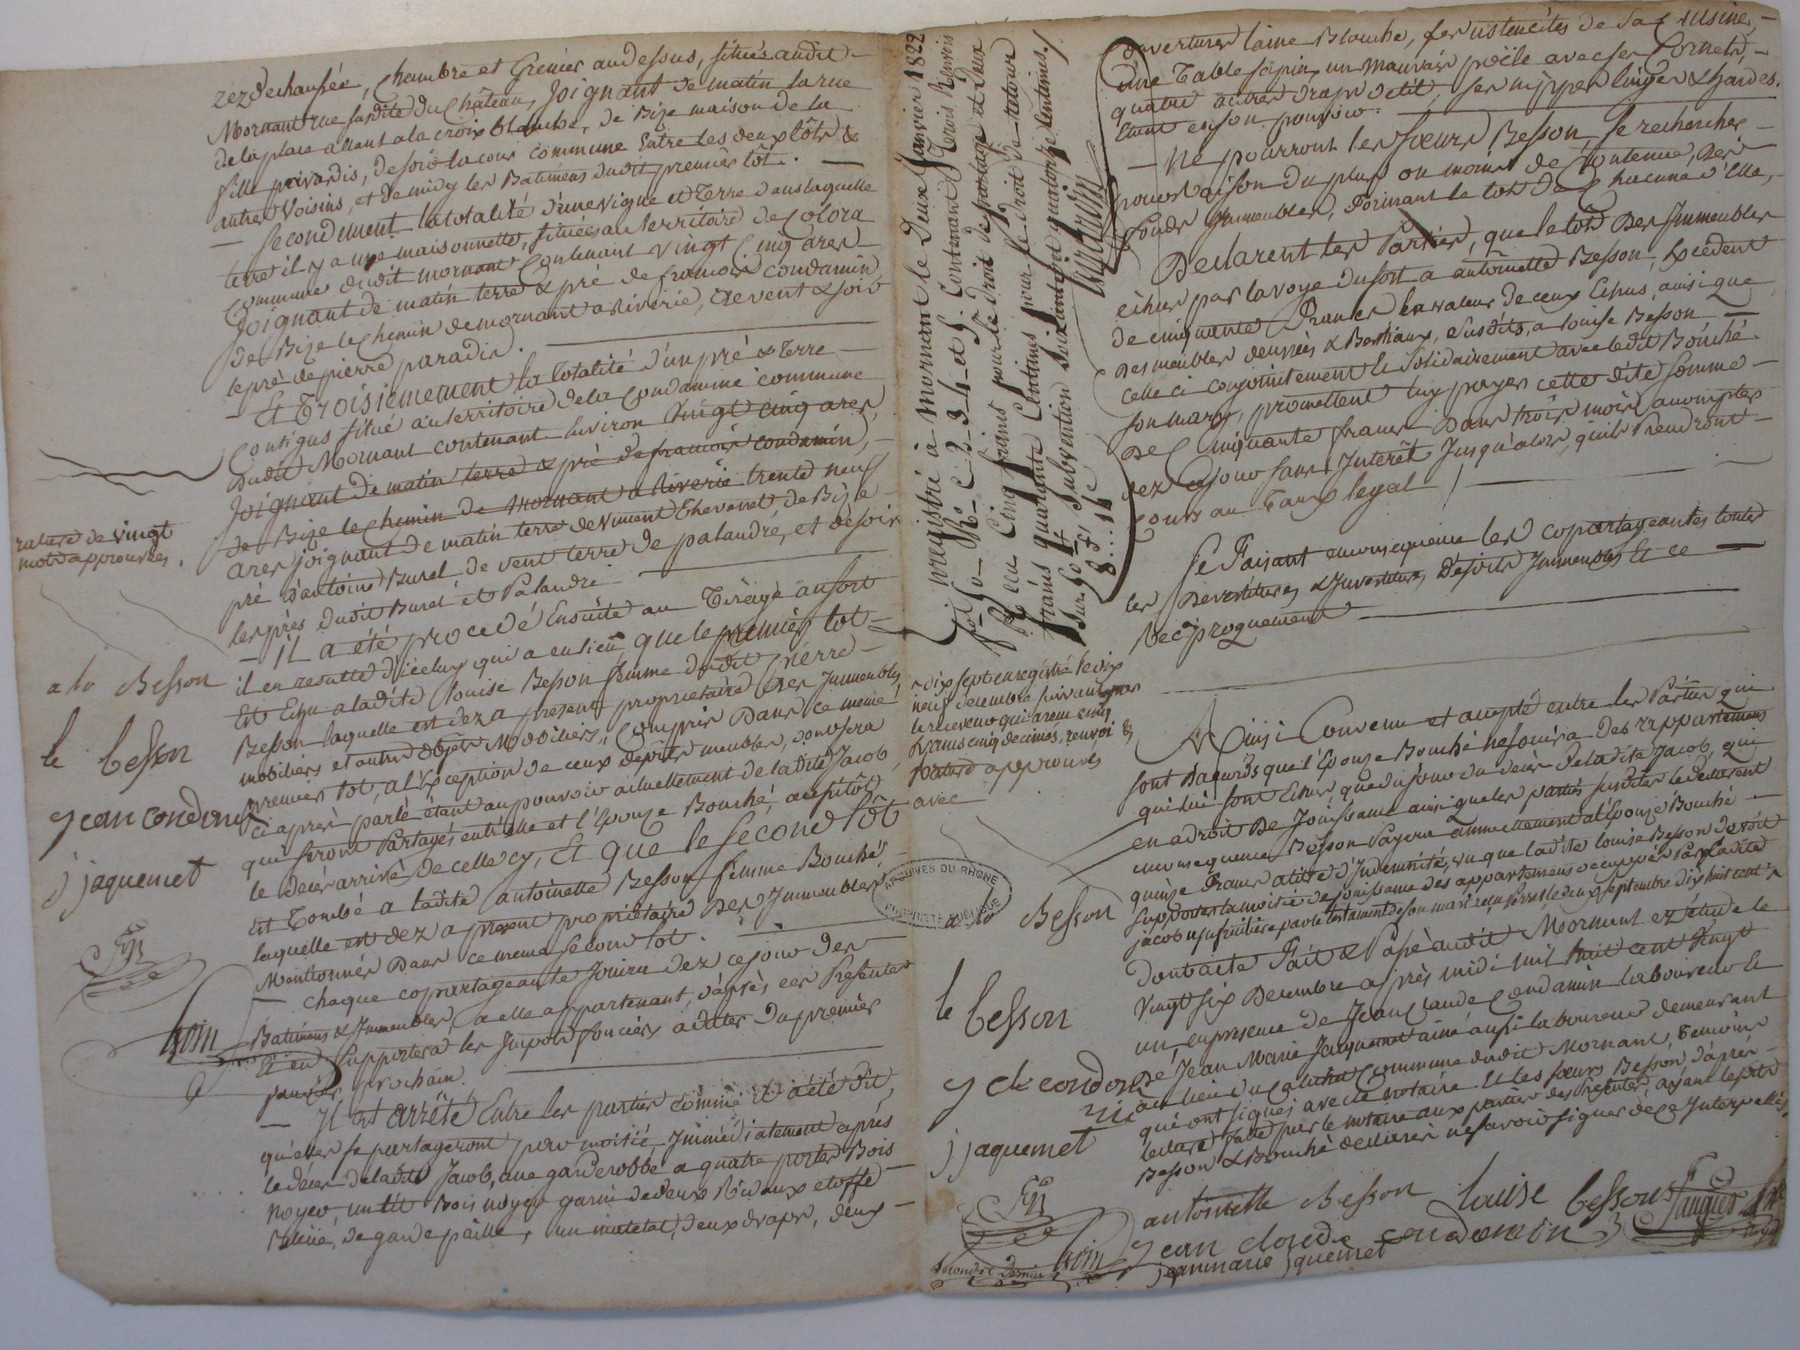 rez de chaussée, Chambre et Grenier au dessus, situés audit
Mornant rue susdite du Château, Joignant de matin la rue
de la place allant a la croix blanche, de Bize maison de la
fille privardis, de soir la cour commune Entre les deux lots &
autres Voisins, et de midy les Batimens dudit premier lot.
— Secondement la totalité d'une vigne et Terre dans laquelle
terre il y a une maisonnette, situées au territoire de Colora
Commune dudit mornant Contenant vingt Cinq ares
Joignant de matin terre & pré de francois condamin,
de Bize le Chemin de mornant a Riverie, de vent & soir
le pré de pierre paradis.
— Et Troisiemement la totalité d'un pré & terre
Contigus situé au territoire de la Condamine commune
dudit Mornant contenant Environ vingt cinq ares,
Joignant de matin terre & pré de francois condamin,
de Bize le Chemin de mornant a Riverie trente neuf
ares joignant de matin terre de vincent Thevenet, de Bize
pré d'antoine Burel de vent terre de palandre, et de soir
les prés dudit Burel et Palandre
— IL a été procédé Ensuite au Tirage au sort
il en resulte d'icelux qui a eu lieu, que le premier lot
Est Echu a ladite Louise Besson femme dudit Pierre
Besson laquelle est dez a present proprietaire des Immeubles
mobiliers et autres objets Mobiliers, Compris Dans ce même
premier lot, a l'Exception de ceux desdits meubles, dont sera
ci après parlé étant au pouvoir actuellement de ladite Jacob,
qui seront Partagés entr'elle et l'Epouze Bouché, aussitôt
le deces arrivé de celle cy, Et que le Second lot
Est Tombé a ladite antoinette Besson femme Bouché
laquelle est dez a present propriétaire des Immeubles
Mentionnés Dans ce meme second lot.
— Chaque copartageante Jouira dez ce jour des
Batimens & Immeubles, a elle appartenant, d'après ces Presentes
et en Supportera les Impots fonciers a dater du premier
janvier prochain.
— Il Est arrêté Entre les parties comme il a été dit,
qu'elles se partageront par moitié Immédiatement après
le deces de ladite Jacob, une garderobbe a quatre portes Bois
Noyer, un lit Bois noyer garni de deux Rideaux etoffe
de garde paille, un matelat, deux draps, deux
rature de vingt
mots approuvées.
a to Besson
le besson
jean condomin
j jaquemet
Enregistré à Mornant le Deux Janvier 1822
fol. 50 Ro. C. 2-3-4-et 5. Contenant Trois Renvois
Reçu Cinq francs pour le droit de partage et deux
francs quarante Centimes pour le droit de retour
Subvention soixante et quatorze Centimes.
8f..14c
dix sept enregistré le dix
neuf decembre suivant par
le receveur qui a reçu cinq
francs cinq decimes, renvoi &
avec
ARCHIVES DU RHONE
a to Besson
le besson
j cl condomin
j jaquemet
couvertures laine Blanche, les ustenciles de La Cuisine,
une Table sapin, un mauvais poële avec ses Cornets,
quatre autres draps de lit, ses nippes linges & hardes.
etant en son pouvoir.
— Ne pourront les Sœurs Besson, se rechercher
pour raison du plus ou moins de Contenue, des
fonds Immeubles, formant le lot de Chacune d'Elle,
Declarent les Parties, que le lot Des Immeubles
echus par la voye du sort a antoinette Besson, Excedent
de cinquante Francs la valeur de ceux Echus, ainsi que
des meubles denrées & Bestiaux, susdits, a Louise Besson
celle ci conjointement & Solidairement avec ledit Bouché
son mary, promettent luy payer cette dite somme
de Cinquante francs Dans trois mois, a compter
dez ce jour sans Intérêt Jusqu'alors, qu'ils Prendront
Cours au Taux legal /
Se Faisant en consequence les copartageantes toutes
les Devestitures & Investitures desdits Immeubles Et ce
Reciproquement
Ainsi Convenu et accepté entre les Parties qui
sont d'accords que l'Epouze Bouché ne jouira des appartemens
qui lui sont Echus que du jour du deces de ladite Jacob, qui
en a droit de Jouissance ainsi que les parties susdites le declarent
en consequence Besson Payera annuellement a l'Epouze Bouché
quinze Francs a titre d'Indemnité, vu que ladite Louise Besson devoit
supporter la moitié de jouissance des appartemens occuppés Par Ladite
jacob usufruitière par le testament de son mari reçu le deux septembre dix huit cent
Dont acte Fait & Passé audit Mornant ez étude le
Vingt six Decembre après midi mil huit cent vingt
un, en presence de Jean Claude Condamin laboureur &
de Jean Marie Jacquemet ainé aussi laboureur demeurant
au lieu du Commune dudit Mornant, temoins
qui ont signés avec le notaire et les sœurs Besson, d'après
lecture faite par le notaire aux parties des Presentes, ayant lesdits
Besson & Bouché declarés ne savoir signer de ce Interpellés
antoinette Besson louise besson
jean cloude condomin
jeanmarie jquemet